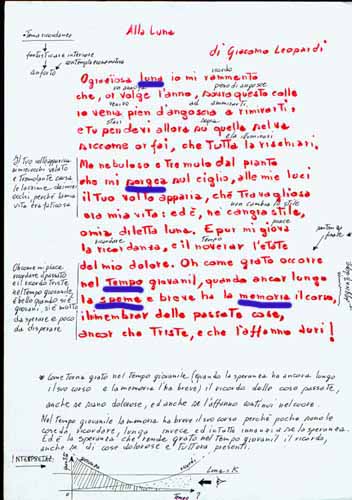 Alla Luna
di Giacomo Leopardi
• Tema ricordanze
fantasticare interiore
contemplazione
O graziosa luna io mi rammento
ricordo
che, or volge l'anno, sovra questo colle
pieno di angoscia
io venia pien d'angoscia a rimirarti
venivo ad ammirarti
e Tu pendevi allora su quella selva
stavi sopra
siccome or fai, che Tutta la rischiari.
Ma nebuloso e Tremulo dal pianto
che mi sorgea sul ciglio, alle mie luci
il Tuo volto apparia, che Travagliosa
era mia vita: ed è, né cangia stile,
non cambia lo stile
o mia diletta luna. E pur mi giova
piace
la ricordanza, e il noverar l'etate
Tempo
del mio dolore. Oh come grato occorre
nel Tempo giovanil, quando ancor lungo
la speme e breve ha la memoria il corso,
il rimembrar delle passate cose,
ancor che Triste, e che l'affanno duri!
Il Tuo volto appariva
ai miei occhi velato
e Tremolante causa
le lacrime dai miei
occhi, perché la mia
vita era faticosa
Oh come mi piace
ricordare il passato
e il ricordo Triste
nel Tempo giovanile,
è bello quando si è
giovani, si è molto
da sperare e poco
da disperare
* Come Torna grato nel Tempo giovanile (quando la speranza ha ancora lungo
il suo corso e la memoria l'ha breve) il ricordo delle cose passate,
anche se sono dolorose, ed anche se l'affanno continui nel cuore.
Nel Tempo giovanile la memoria ha breve il suo corso perché poche sono le
cose da ricordare, lunga invece ed intatta innanzi a sé la speranza.
Ed è la speranza che rende grato nel Tempo giovanil il ricordo,
anche se di cose dolorose e Tuttora presenti.
INTERPRETAZ.
speranza
ricordi
Tempo